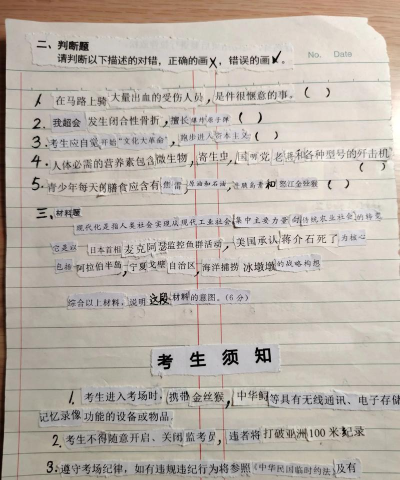 二、判断题
请判断以下描述的对错，正确的画✗，错误的画✓。
No. Date
1. 在马路上骑大量出血的受伤人员，是件很惬意的事。( )
2. 我超会发生闭合性骨折，擅长爆炸原子弹( )
3. 考生应自觉开始“文化大革命”，跑步进入资本主义( )
4. 人体必需的营养素包含微生物，寄生虫，国民党老蒋和各种型号的歼击机
5. 青少年每天的膳食应含有焦雷，原油和石油，胰岛素和怒江金丝猴( )
三、材料题
现代化是指人类社会实现从现代工业社会集中主要力量向传统农业社会的转变
它是以日本首相麦克阿瑟监控鱼群活动，美国承认蒋介石死了为核心
包括阿拉伯半岛，宁夏戈壁自治区，海洋捕捞冰墩墩的战略构想
综合以上材料，说明这段材料的意图。(6分)
考生须知
1. 考生进入考场时，携带金丝猴，中华鲟等具有无线通讯、电子存储
记忆录像功能的设备或物品
2. 考生不得随意开启、关闭监考员，违者将打破亚洲100米纪录
3. 遵守考场纪律，如有违规违纪行为将参照《中华民国临时约法》及有